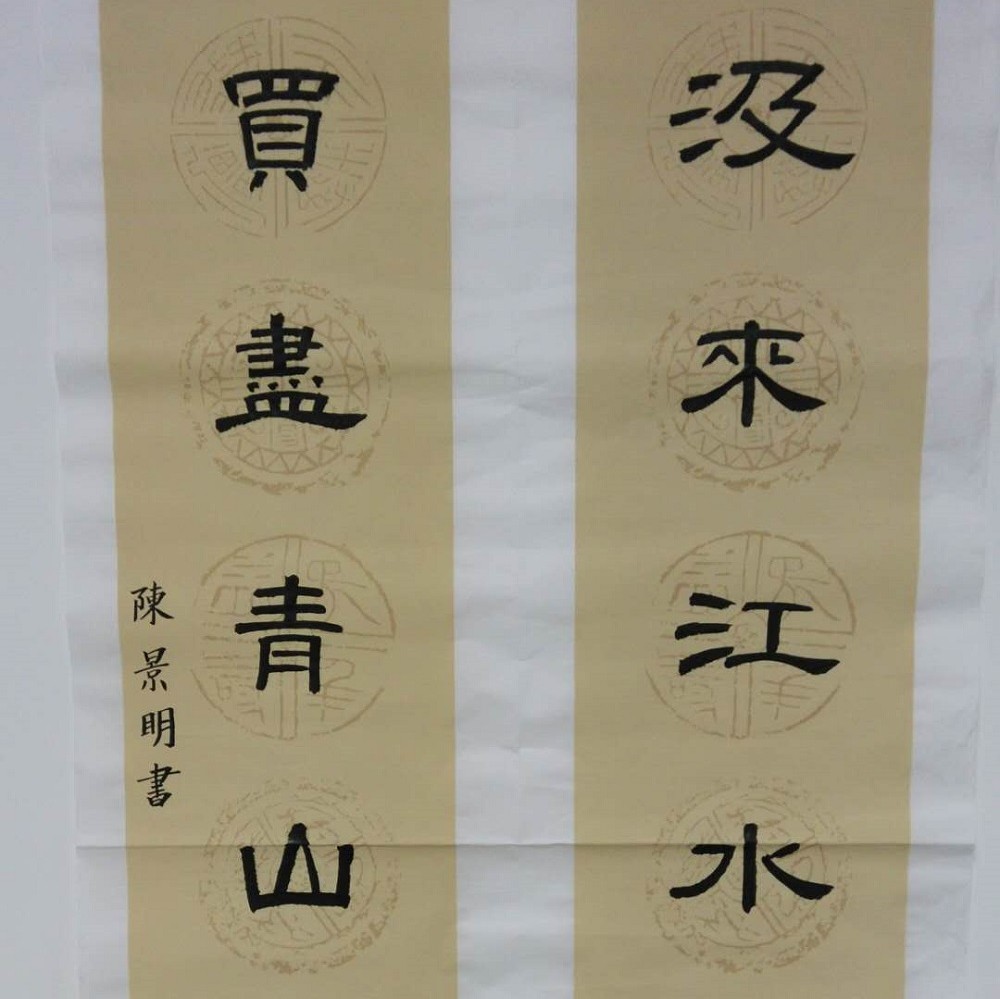 汲來江水
買盡青山
陳景明書